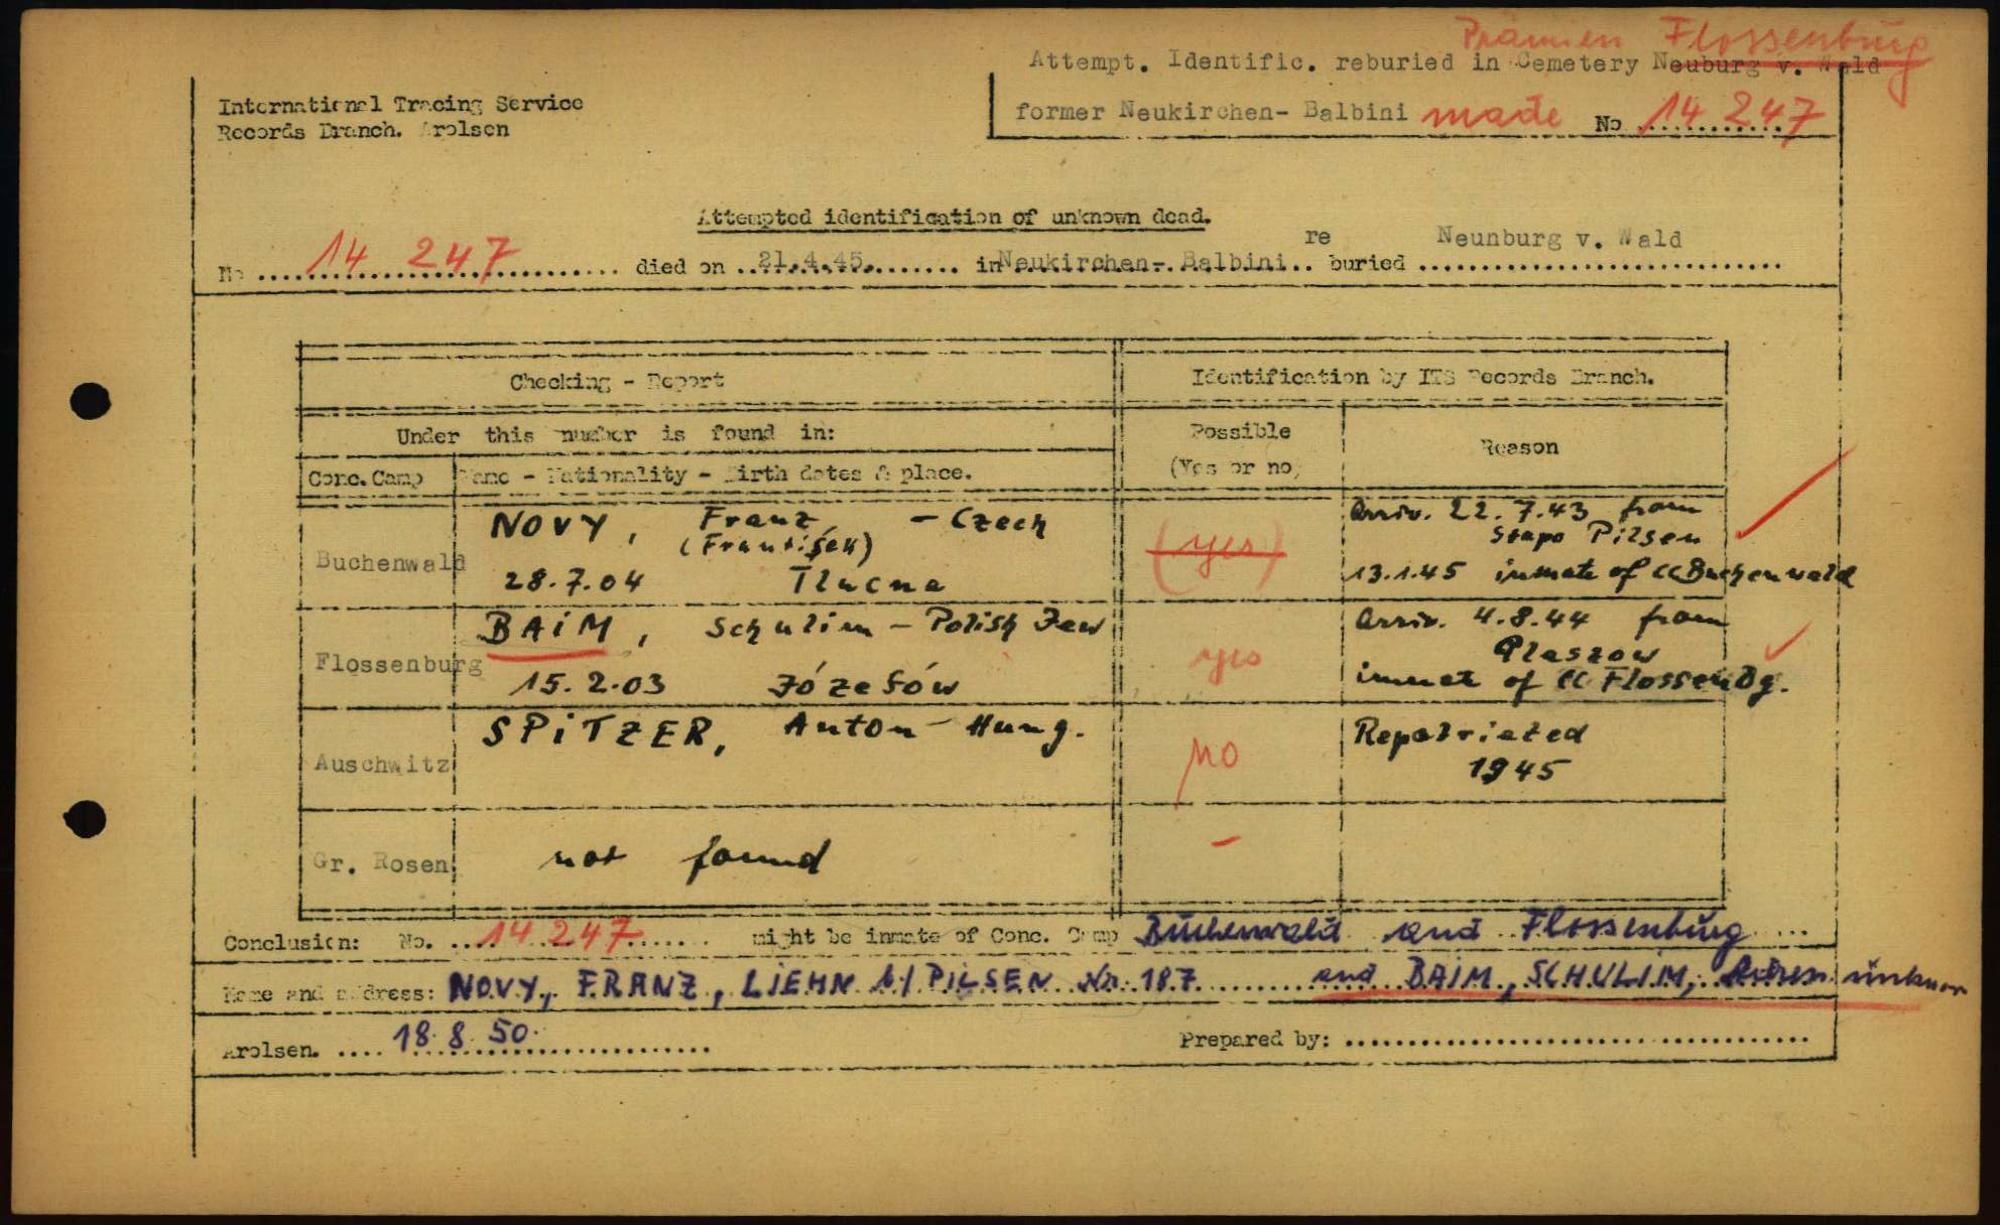 Prämien Flossenbürg
Attempt. Identific. reburied in Cemetery Neuburg v. Wald
former Neukirchen- Balbini made No 14 247
International Tracing Service
Records Branch. Arolsen
Attempted identification of unknown dead.
No 14 247 died on 21.4.45. in Neukirchen- Balbini re buried Neunburg v. Wald
Checking - Report
Identification by ITS Records Branch.
Under this number is found in:
Possible
(Yes or no)
Reason
Conc. Camp
Name - Nationality - Birth dates & place.
Buchenwald
NOVY, Franz, - Czech
(František)
28.7.04 Tlucna
(yes)
Arriv. 22.7.43 from
Stapo Pilsen
13.1.45 inmate of CC Buchenwald
Flossenburg
BAIM, Schulim - Polish Jew
15.2.03 Józefów
yes
Arriv. 4.8.44 from
Plaszow
inmate of CC Flossenbg.
Auschwitz
SPITZER, Anton - Hung.
no
Repatriated
1945
Gr. Rosen
not found
-
Conclusion: No. 14 247 might be inmate of Conc. Camp Buchenwald and Flossenbürg
Name and address: NOVY, FRANZ, LIEHN b/ PILSEN Nr. 187 and BAIM, SCHULIM,
Arolsen. 18.8.50.
Prepared by: